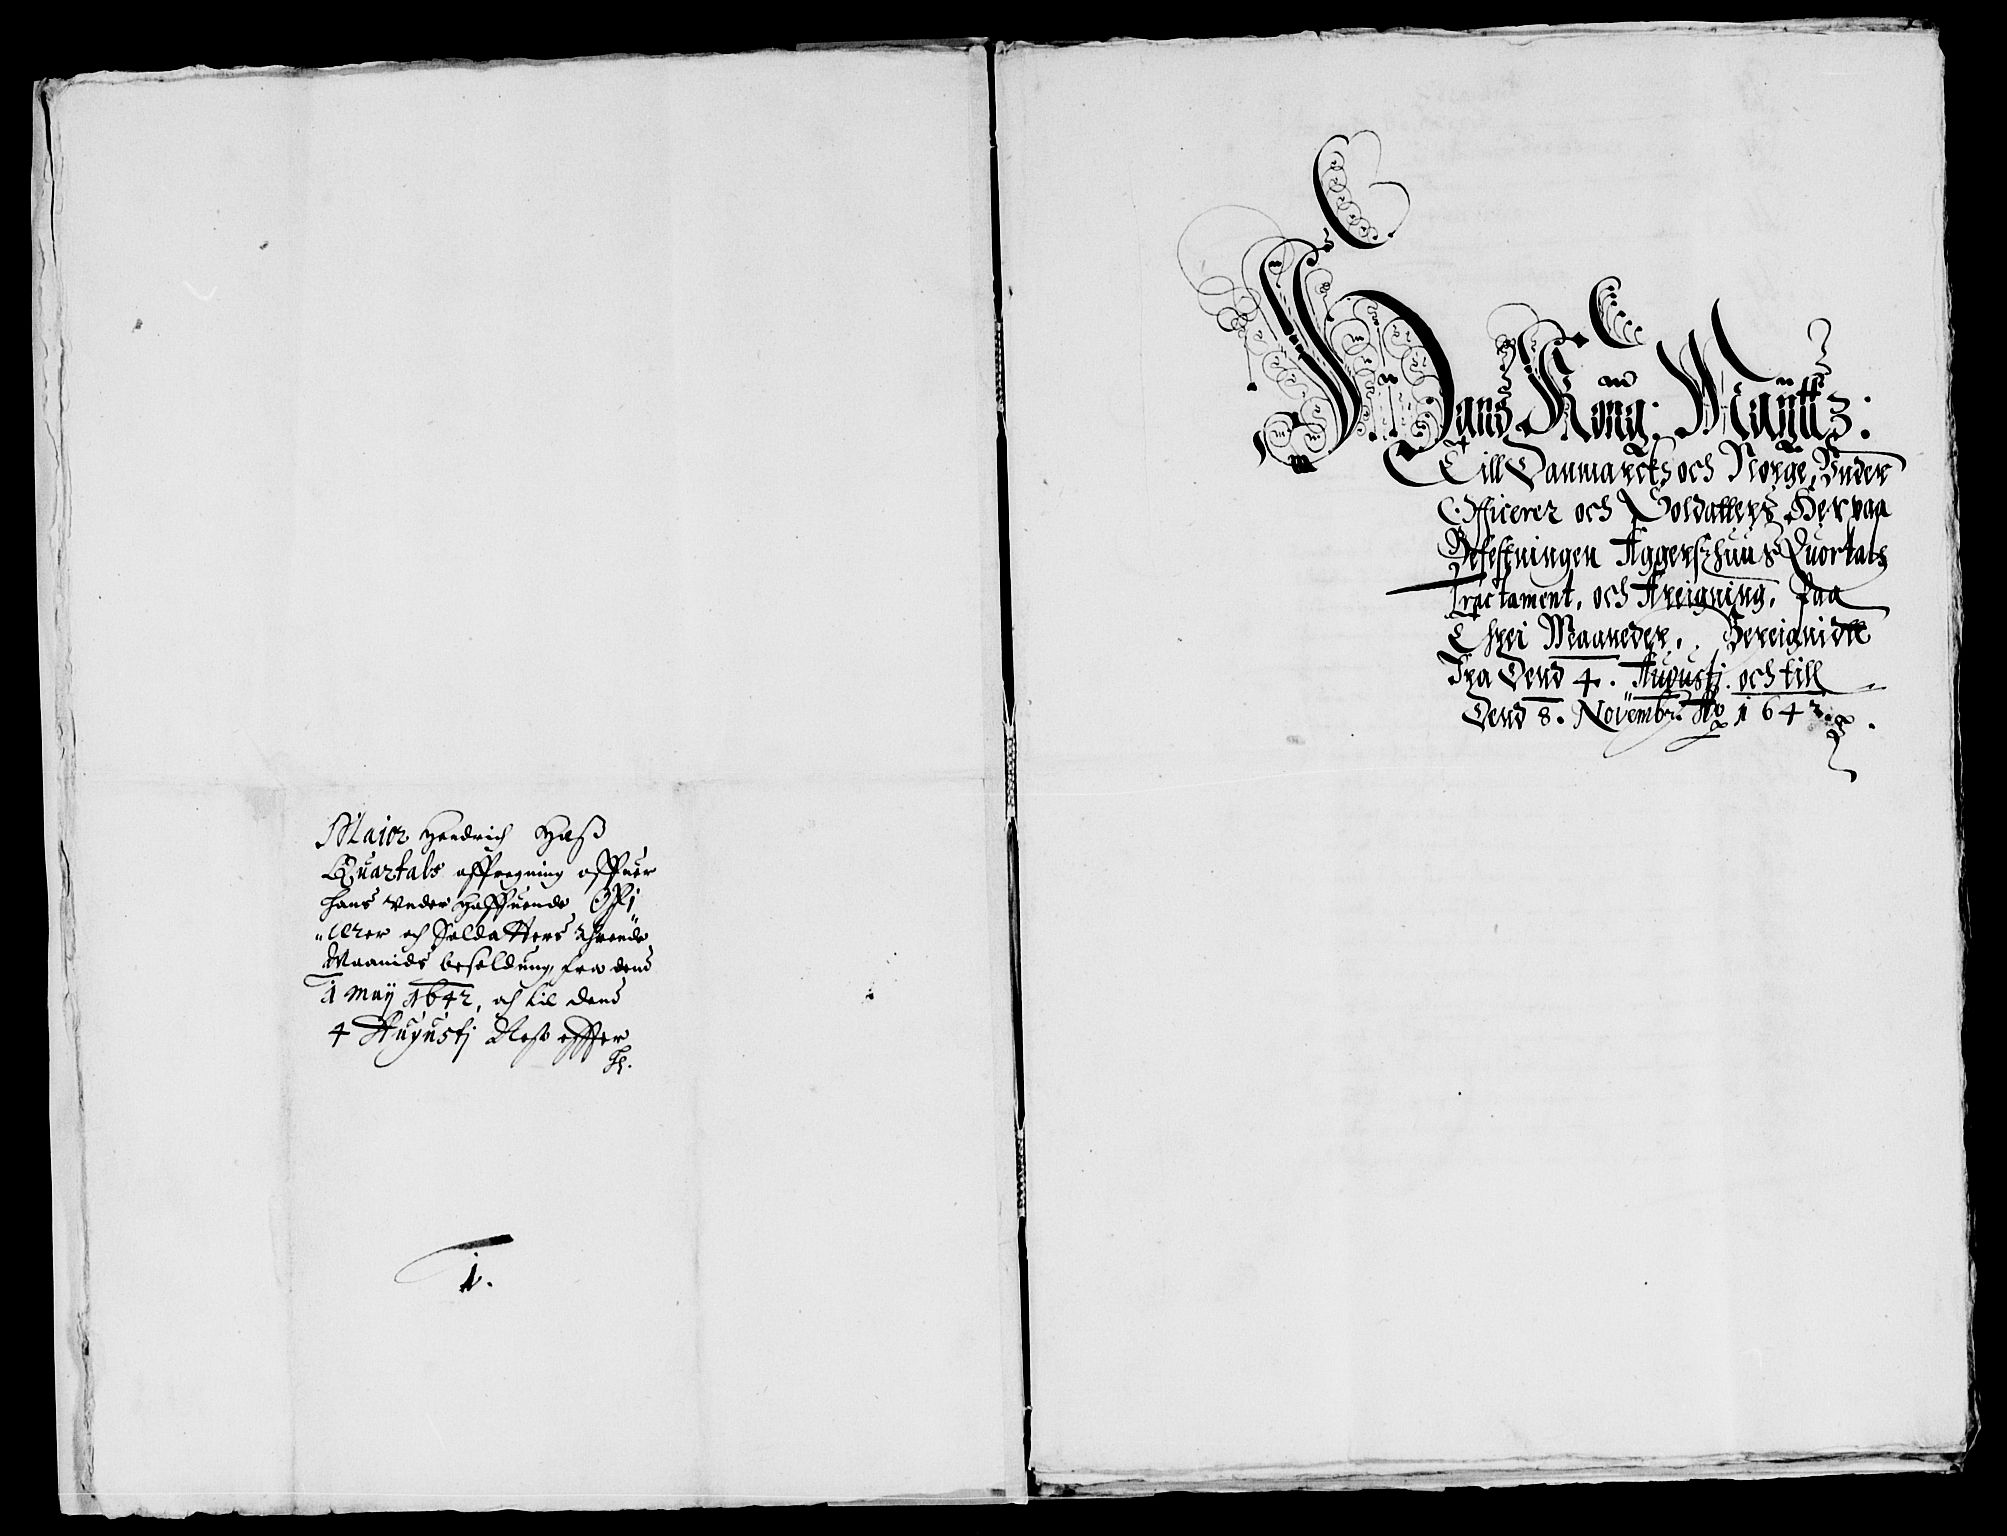 Maior Hendrich Haß
Quartals affregning offuer
hans vnder haffuende Offi
"cerer och Soldatters thrende
Maanids besoldung, fra dend
1 Maÿ 1642, och til dend
4 Augustj Nest effter
1.
Hans Kong: Maÿttz:
Till Danmarcks och Norge, Vnder
Officerer och Soldatters Her paa
Befestningen Aggerszhuus Quortals
Tractament, och Afreigning, paa
Threi Maaneder, Bereignidtt
Fra Dend 4. Augustj. och till
Dend 8. Novembr. Ao 1642.